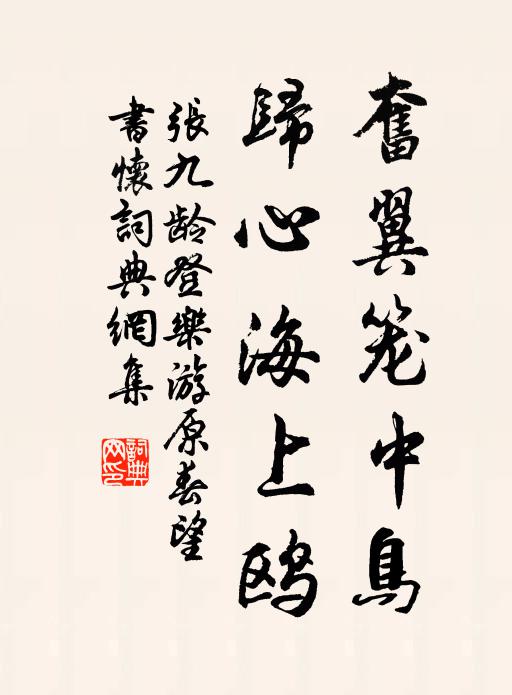 奮翼笼中鳥
歸心海上鸥
張九龄登樂游原春望
書懷詞典網集
詞典
网印